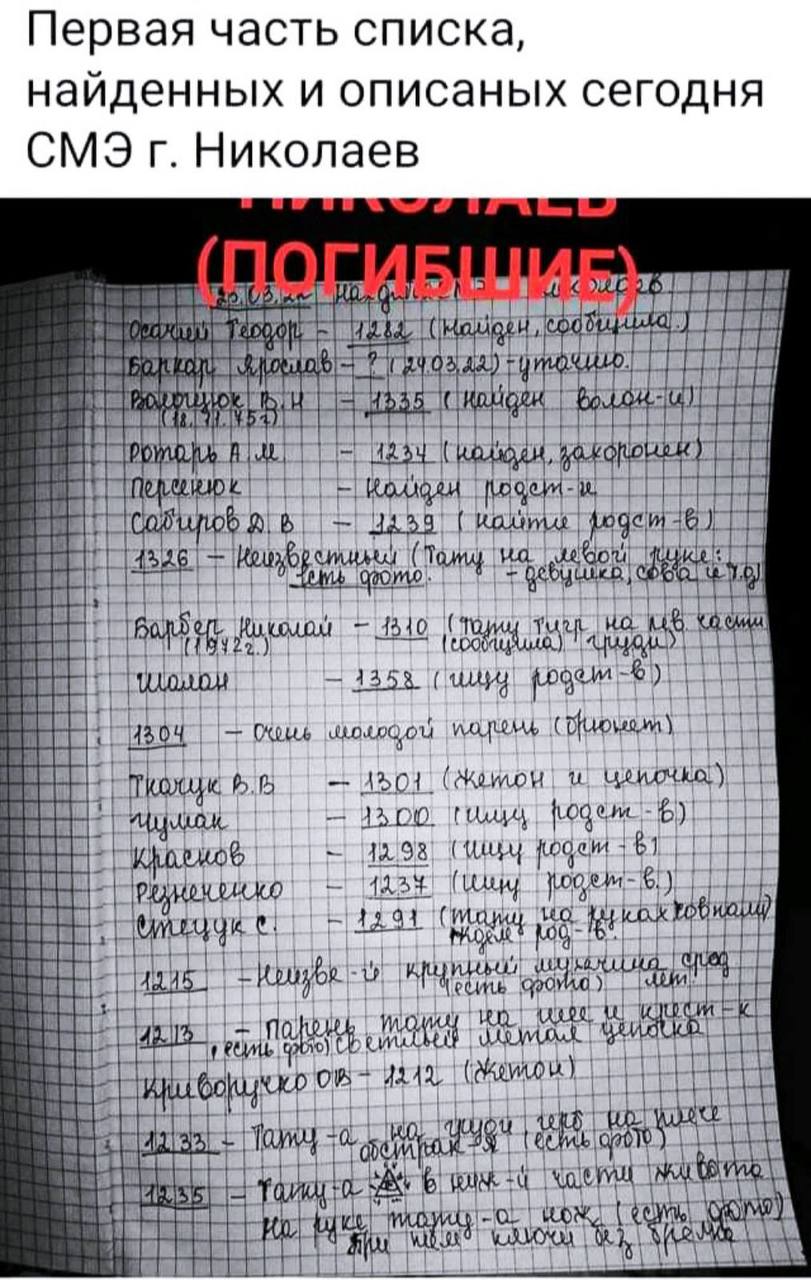 Первая часть списка,
найденных и описаных сегодня
СМЭ г. Николаев
НИКОЛАЕВ
(ПОГИБШИЕ)
Осачий Теодор - 1282 (найден, сообщила.)
Баркар Ярослав - ? (24.03.22) - уточню.
В.Н - 1335 (найден волон-и)
Ротарь А.М - 1234 (найден, захоронен)
Персенюк - найден родст-и
Сабиров Д.В - 1239 (найти родст-в)
1326 - Неизвестный (Тату на левой руке:
есть фото. - девушка, сова и т.д)
Барбер Николай - 1310 (тату тигр на лев. части
(1972г.) (сообщила) груди)
Шалан - 1358 (ищу родст-в)
1304 - Очень молодой парень (брюнет)
Ткачук В.В - 1301 (жетон и цепочка)
Чуман - 1300 (ищу родст-в)
Краснов - 1298 (ищу родст-в)
Резниченко - 1237 (ищу родст-в.)
Стецук С. - 1291 (тату на руках
род-в.
1215 - Неизве-й крупный мужчина сред
(есть фото) лет.
1213 - парень тату на шее и крест-к
(есть фото) светлый метал цепочка
Криворучко ОВ - 1212 (жетон)
1233 - Тату-а на груди, герб на плече
абстрак-я (есть фото)
1235 - Тату-а в ниж-й части живота
на руке тату-а нож (есть фото)
при теле ключи без